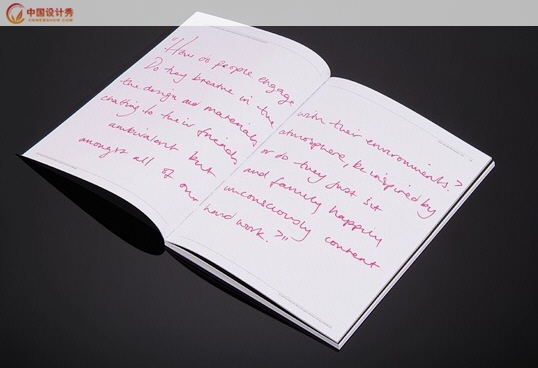 中国设计秀
"How do people engage with their environments?
Do they breathe in the atmosphere, be inspired by
the design and materials or do they just sit
chatting to their friends and family happily
ambivalent but unconsciously content
amongst all of our hard work?"